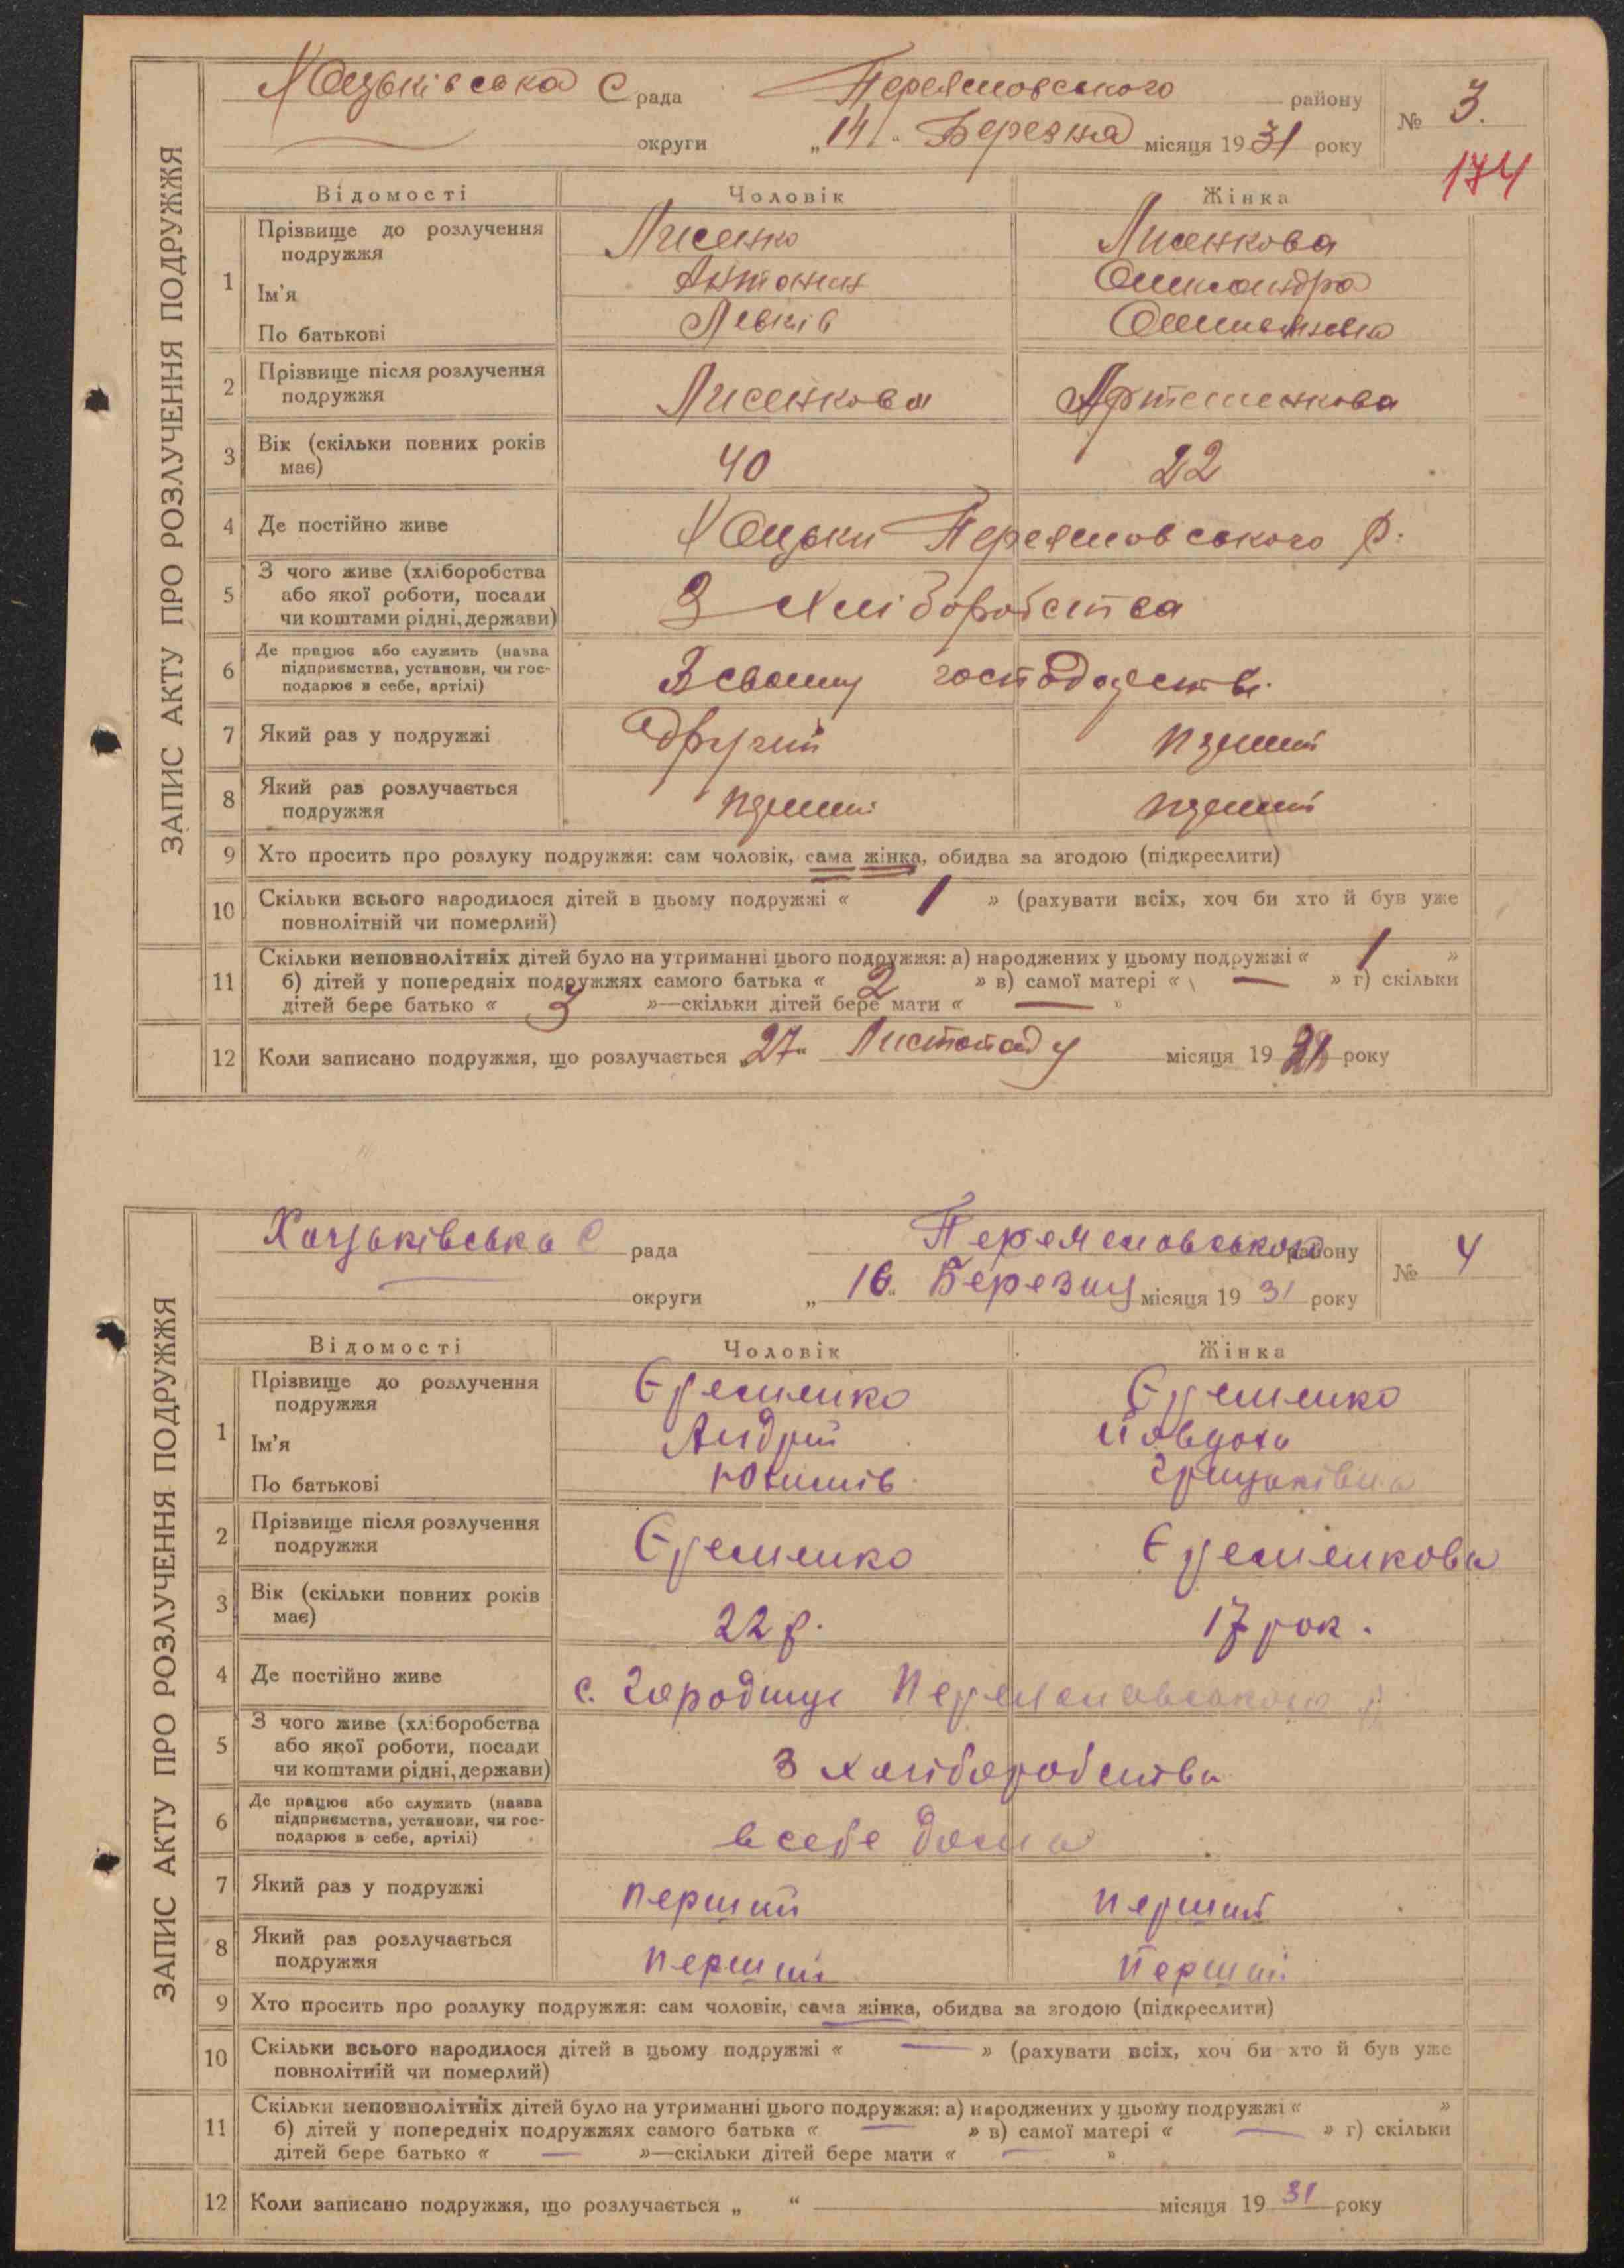 ЗАПИС АКТУ ПРО РОЗЛУЧЕННЯ ПОДРУЖЖЯ
Хоцьківська С рада Переяславського району № 3.
округи „14" Березня місяця 1931 року
174
Відомості Чоловік Жінка
1 Прізвище до розлучення подружжя Лисенко Лисенкова
Ім'я Антонин Олександра
По батькові Левків
2 Прізвище після розлучення подружжя Лисенкова Артеменкова
3 Вік (скільки повних років має) 40 22
4 Де постійно живе Хоцьки Переяславського р.
5 З чого живе (хліборобства або якої роботи, посади чи коштами рідні, держави) З хліборобства
6 Де працює або служить (назва підприємства, установи, чи господарює в себе, артілі) В своєму господарстві.
7 Який раз у подружжі Другий перший
8 Який раз розлучається подружжя перший перший
9 Хто просить про розлуку подружжя: сам чоловік, сама жінка, обидва за згодою (підкреслити)
10 Скільки всього народилося дітей в цьому подружжі « 1 » (рахувати всіх, хоч би хто й був уже
повнолітній чи померлий)
11 Скільки неповнолітніх дітей було на утриманні цього подружжя: а) народжених у цьому подружжі « 1 »
б) дітей у попередніх подружжях самого батька « 2 » в) самої матері « — » г) скільки
дітей бере батько « 3 »—скільки дітей бере мати « — »
12 Коли записано подружжя, що розлучається „27" Листопаду місяця 19 року
ЗАПИС АКТУ ПРО РОЗЛУЧЕННЯ ПОДРУЖЖЯ
Хоцьківська С рада Переяславського району № 4
округи „16" Березня місяця 1931 року
Відомості Чоловік Жінка
1 Прізвище до розлучення подружжя Єременко Єременко
Ім'я Андрій Йовдоха
По батькові Юхимів Грицьківна
2 Прізвище після розлучення подружжя Єременко Єременкова
3 Вік (скільки повних років має) 22 р. 17 рок.
4 Де постійно живе с. Городище Переяславського р.
5 З чого живе (хліборобства або якої роботи, посади чи коштами рідні, держави) З хліборобства
6 Де працює або служить (назва підприємства, установи, чи господарює в себе, артілі) в себе дома
7 Який раз у подружжі перший перший
8 Який раз розлучається подружжя перший перший
9 Хто просить про розлуку подружжя: сам чоловік, сама жінка, обидва за згодою (підкреслити)
10 Скільки всього народилося дітей в цьому подружжі « — » (рахувати всіх, хоч би хто й був уже
повнолітній чи померлий)
11 Скільки неповнолітніх дітей було на утриманні цього подружжя: а) народжених у цьому подружжі « »
б) дітей у попередніх подружжях самого батька « — » в) самої матері « — » г) скільки
дітей бере батько « — »—скільки дітей бере мати « — »
12 Коли записано подружжя, що розлучається „ " місяця 1931 року